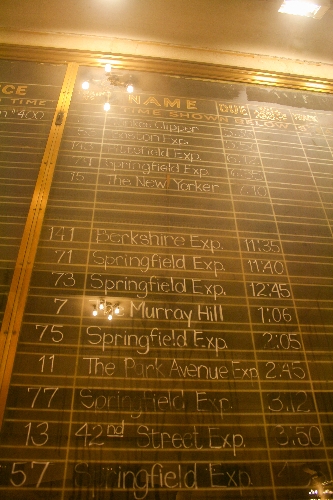 CE
NAME DUE
TIME TIME SHOWN BELOW
4:00
Springfield Exp.
75 The New Yorker
141 Berkshire Exp. 11:35
71 Springfield Exp. 11:40
73 Springfield Exp. 12:45
7 Murray Hill 1:06
75 Springfield Exp. 2:05
11 The Park Avenue Exp 2:45
77 Springfield Exp. 3:12
13 42nd Street Exp. 3:50
57 Springfield Exp.